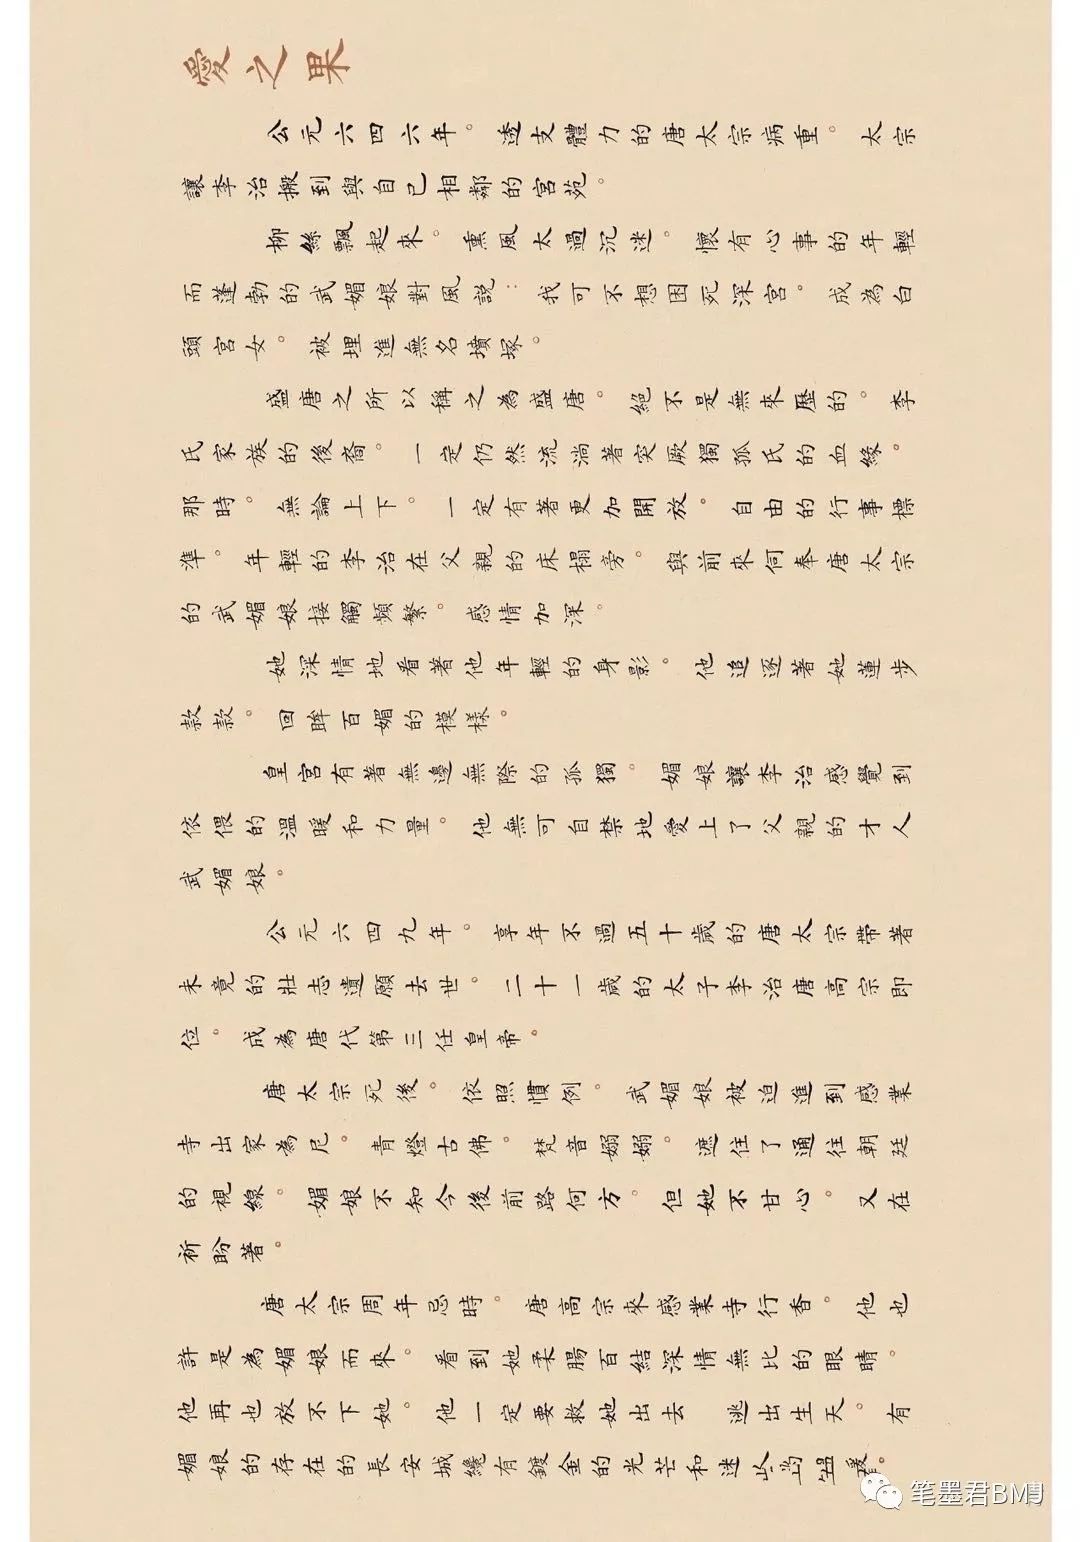 愛之果
公元六四六年。透支體力的唐太宗病重。太宗
讓李治搬到與自己相鄰的宮苑。
柳絲飄起來。熏風太過沉迷。懷有心事的年輕
而蓬勃的武媚娘對風説：我可不想困死深宮。成為白
頭宮女。被埋進無名墳塚。
盛唐之所以稱之為盛唐。絕不是無來歷的。李
氏家族的後裔。一定仍然流淌著突厥獨孤氏的血緣。
那時。無論上下。一定有著更加開放。自由的行事標
準。年輕的李治在父親的床榻旁。與前來伺奉唐太宗
的武媚娘接觸頻繁。感情加深。
她深情地看著他年輕的身影。他追逐著她蓮步
款款。回眸百媚的模樣。
皇宮有著無邊無際的孤獨。媚娘讓李治感覺到
依偎的溫暖和力量。他無可自禁地愛上了父親的才人
武媚娘。
公元六四九年。享年不過五十歲的唐太宗帶著
未竟的壯志遺願去世。二十一歲的太子李治唐高宗即
位。成為唐代第三任皇帝。
唐太宗死後。依照慣例。武媚娘被迫進到感業
寺出家為尼。青燈古佛。梵音嫋嫋。遮住了通往朝廷
的視線。媚娘不知今後前路何方。但她不甘心。又在
祈盼著。
唐太宗周年忌時。唐高宗來感業寺行香。他也
許是為媚娘而來。看到她柔腸百結深情無比的眼睛。
他再也放不下她。他一定要救她出去 逃出生天。有
媚娘的存在的長安城纔有鍍金的光芒和迷
笔墨君BM